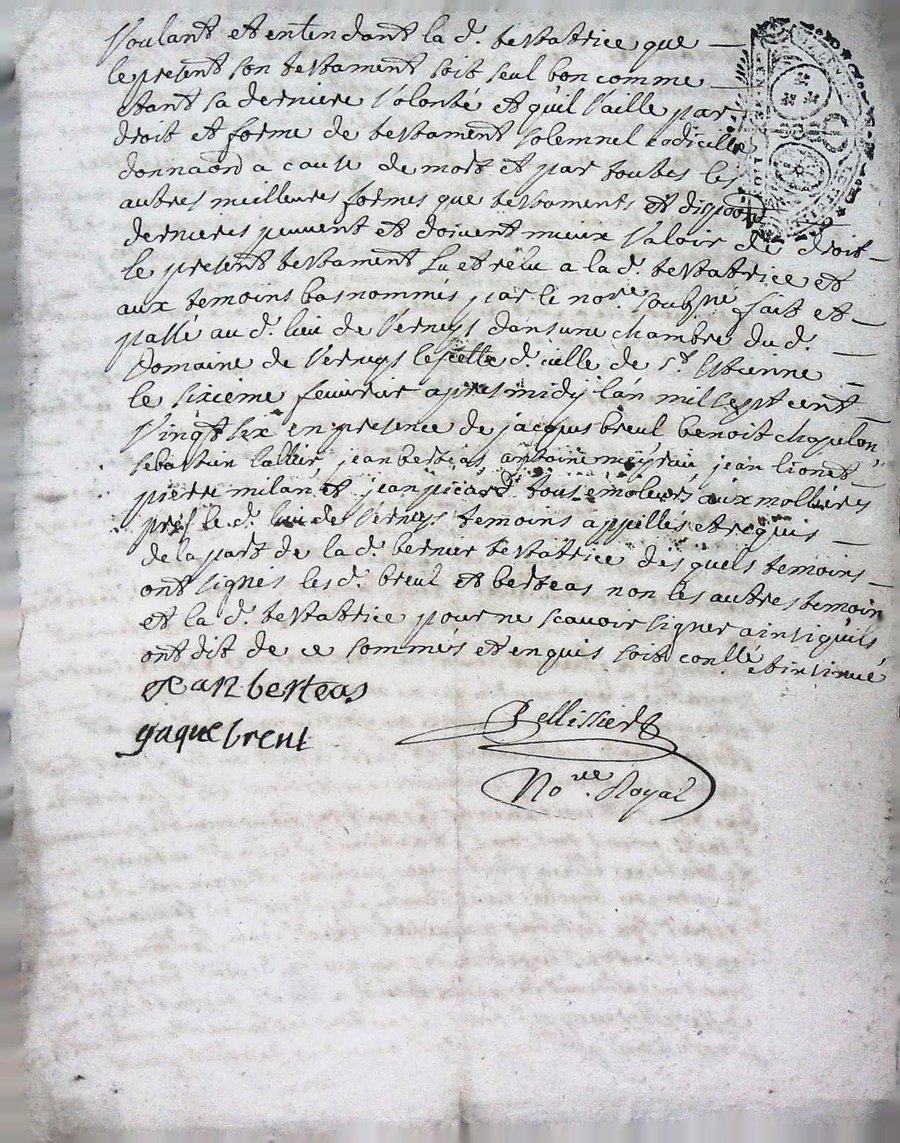 Voulant et entendant la d. testatrice que
le present son testament soit seul bon comme
etant sa derniere volonté et qu'il vaille par
droit et forme de testament solemnel codicille
donnaõn a cause de mort et par toutes les
autres meilleures formes que testaments et dispoõn
dernieres peuvent et doivent mieux valoir de droit
le present testament lu et rélu a la d. testatrice et
aux temoins bas nommés par le no.re soubsné fait et
passé au d. lieu de Vernys dans une chambre du d.
Domaine de Vernys d. ville de s.t Etienne
le sixieme feuvrier apres midy l'an mil sept cent
vingt six en presence de jacques breul benoit chapelon
sebastien jean berteas antoine jean lionet
pierre milan et jean picard tous aux mollieres
pres le d. lieu de Vernys temoins appellés et requis
de la part de la d. bernier testatrice des quels temoins
ont signés les d. breul et berteas non les autres temoin
et la d. testatrice pour ne scavoir signer ainsi qu'ils
ont dit de ce sommés et enquis soit conllé et insinué
jean berteas
gaque breul
Pellissier
No.re Royal